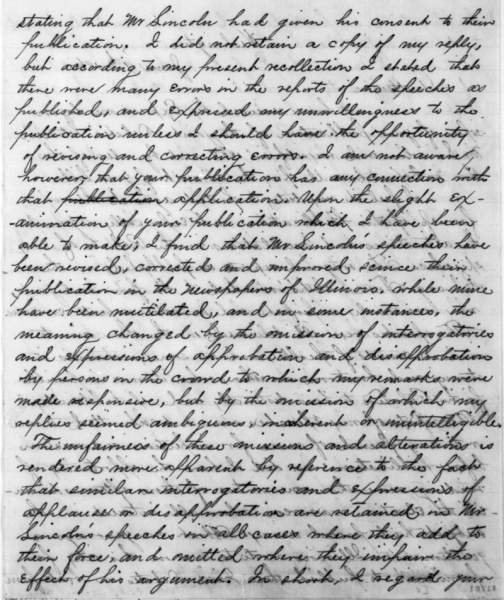 stating that Mr Lincoln had given his consent to their
publication. I did not retain a copy of my reply,
but according to my present recollection I stated that
there were many errors in the reports of the speeches as
published, and expressed my unwillingness to the
publication unless I should have the opportunity
of revising and correcting errors. I am not aware,
however, that your publication has any connection with
that publication application. Upon the slight ex-
-amination of your publication which I have been
able to make, I find that Mr Lincoln's speeches have
been revised, corrected and improved since their
publication in the newspapers of Illinois, while mine
have been mutilated, and in some instances, the
meaning changed by the omission of interrogatories
and expressions of approbation and disapprobation
by persons in the crowd to which my remarks were
made responsive, but by the omission of which, my
replies seemed ambiguous, incoherent or unintelligible.
The unfairness of these omissions and alterations is
rendered more apparent by reference to the fact
that similar interrogatories and expressions of
applause or disapprobation are retained in Mr
Lincoln's speeches in all cases where they add to
their force, and omitted where they impair the
effect of his argument. In short, I regard your